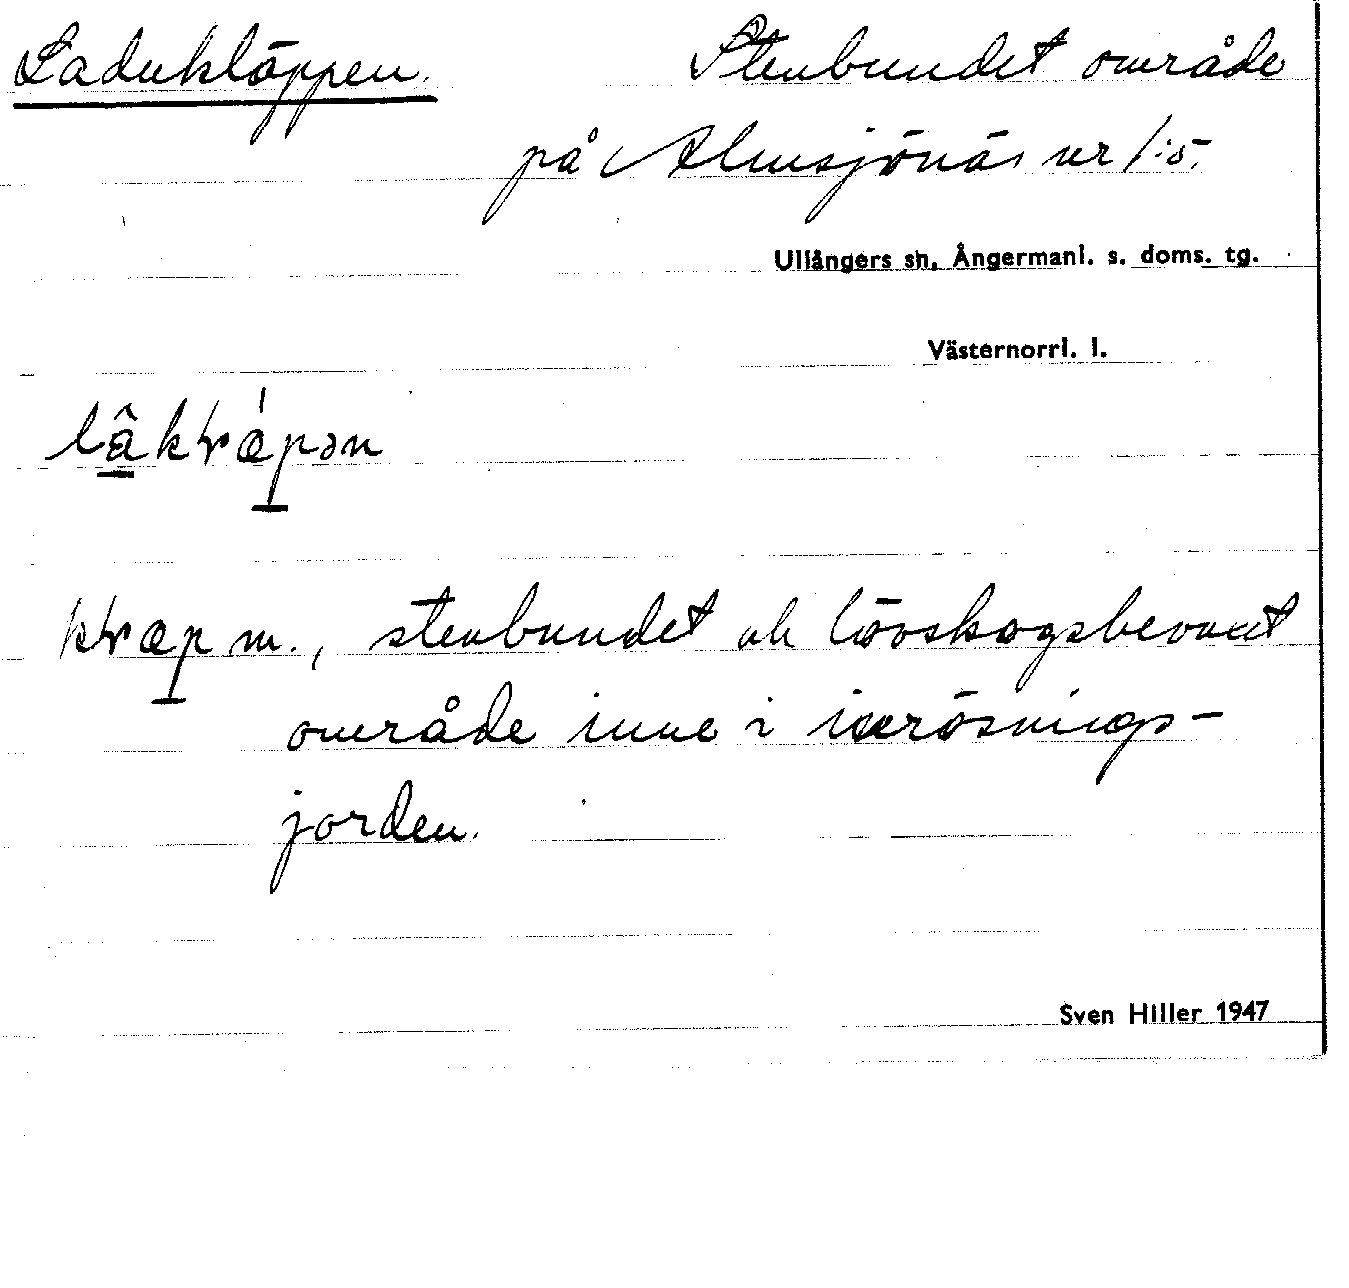 Laduklöppen. Stenbundet område
på Almsjönäs nr 1:5.
Ullångers sn, Ångermanl. s. doms. tg.
Västernorrl. l.
stenbundet och lövskogsbevuxet
område inne i inrösnings-
jorden.
Sven Hiller 1947